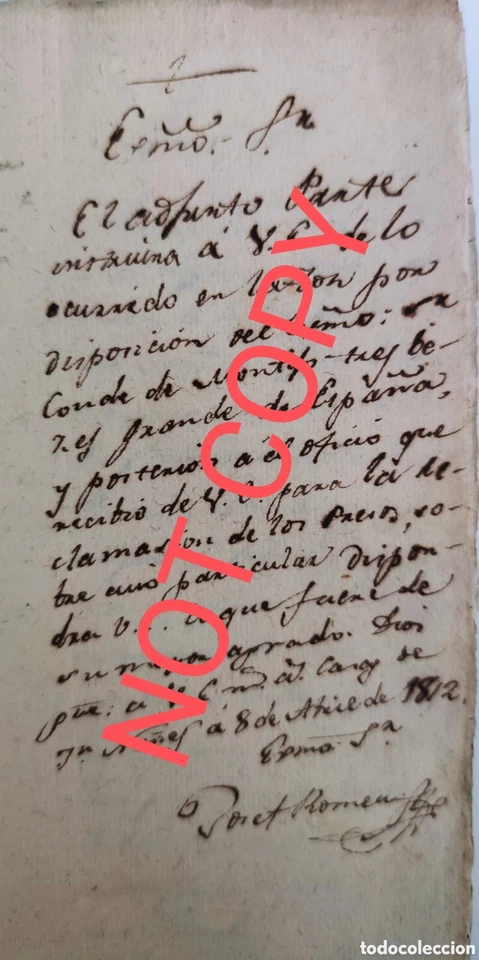 Exmo. Sr.
El adjunto Parte
instruira á V. E. de lo
ocurrido en la por
disposición del Exmo: Sr
Conde de Montijo tres be-
zes Grande de España,
y posterior á el oficio que
recibió de V. E. para la re-
clamasion de los Presos, so-
bre cuio particular dispon-
dra V. E. lo que fuere de
su mayor agrado. Dios
gue. a V. E. m.s a.s de
Jn á 8 de Abril de 1812.
Exmo. Sr
Josef Romeu
NOT COPY
todocoleccion